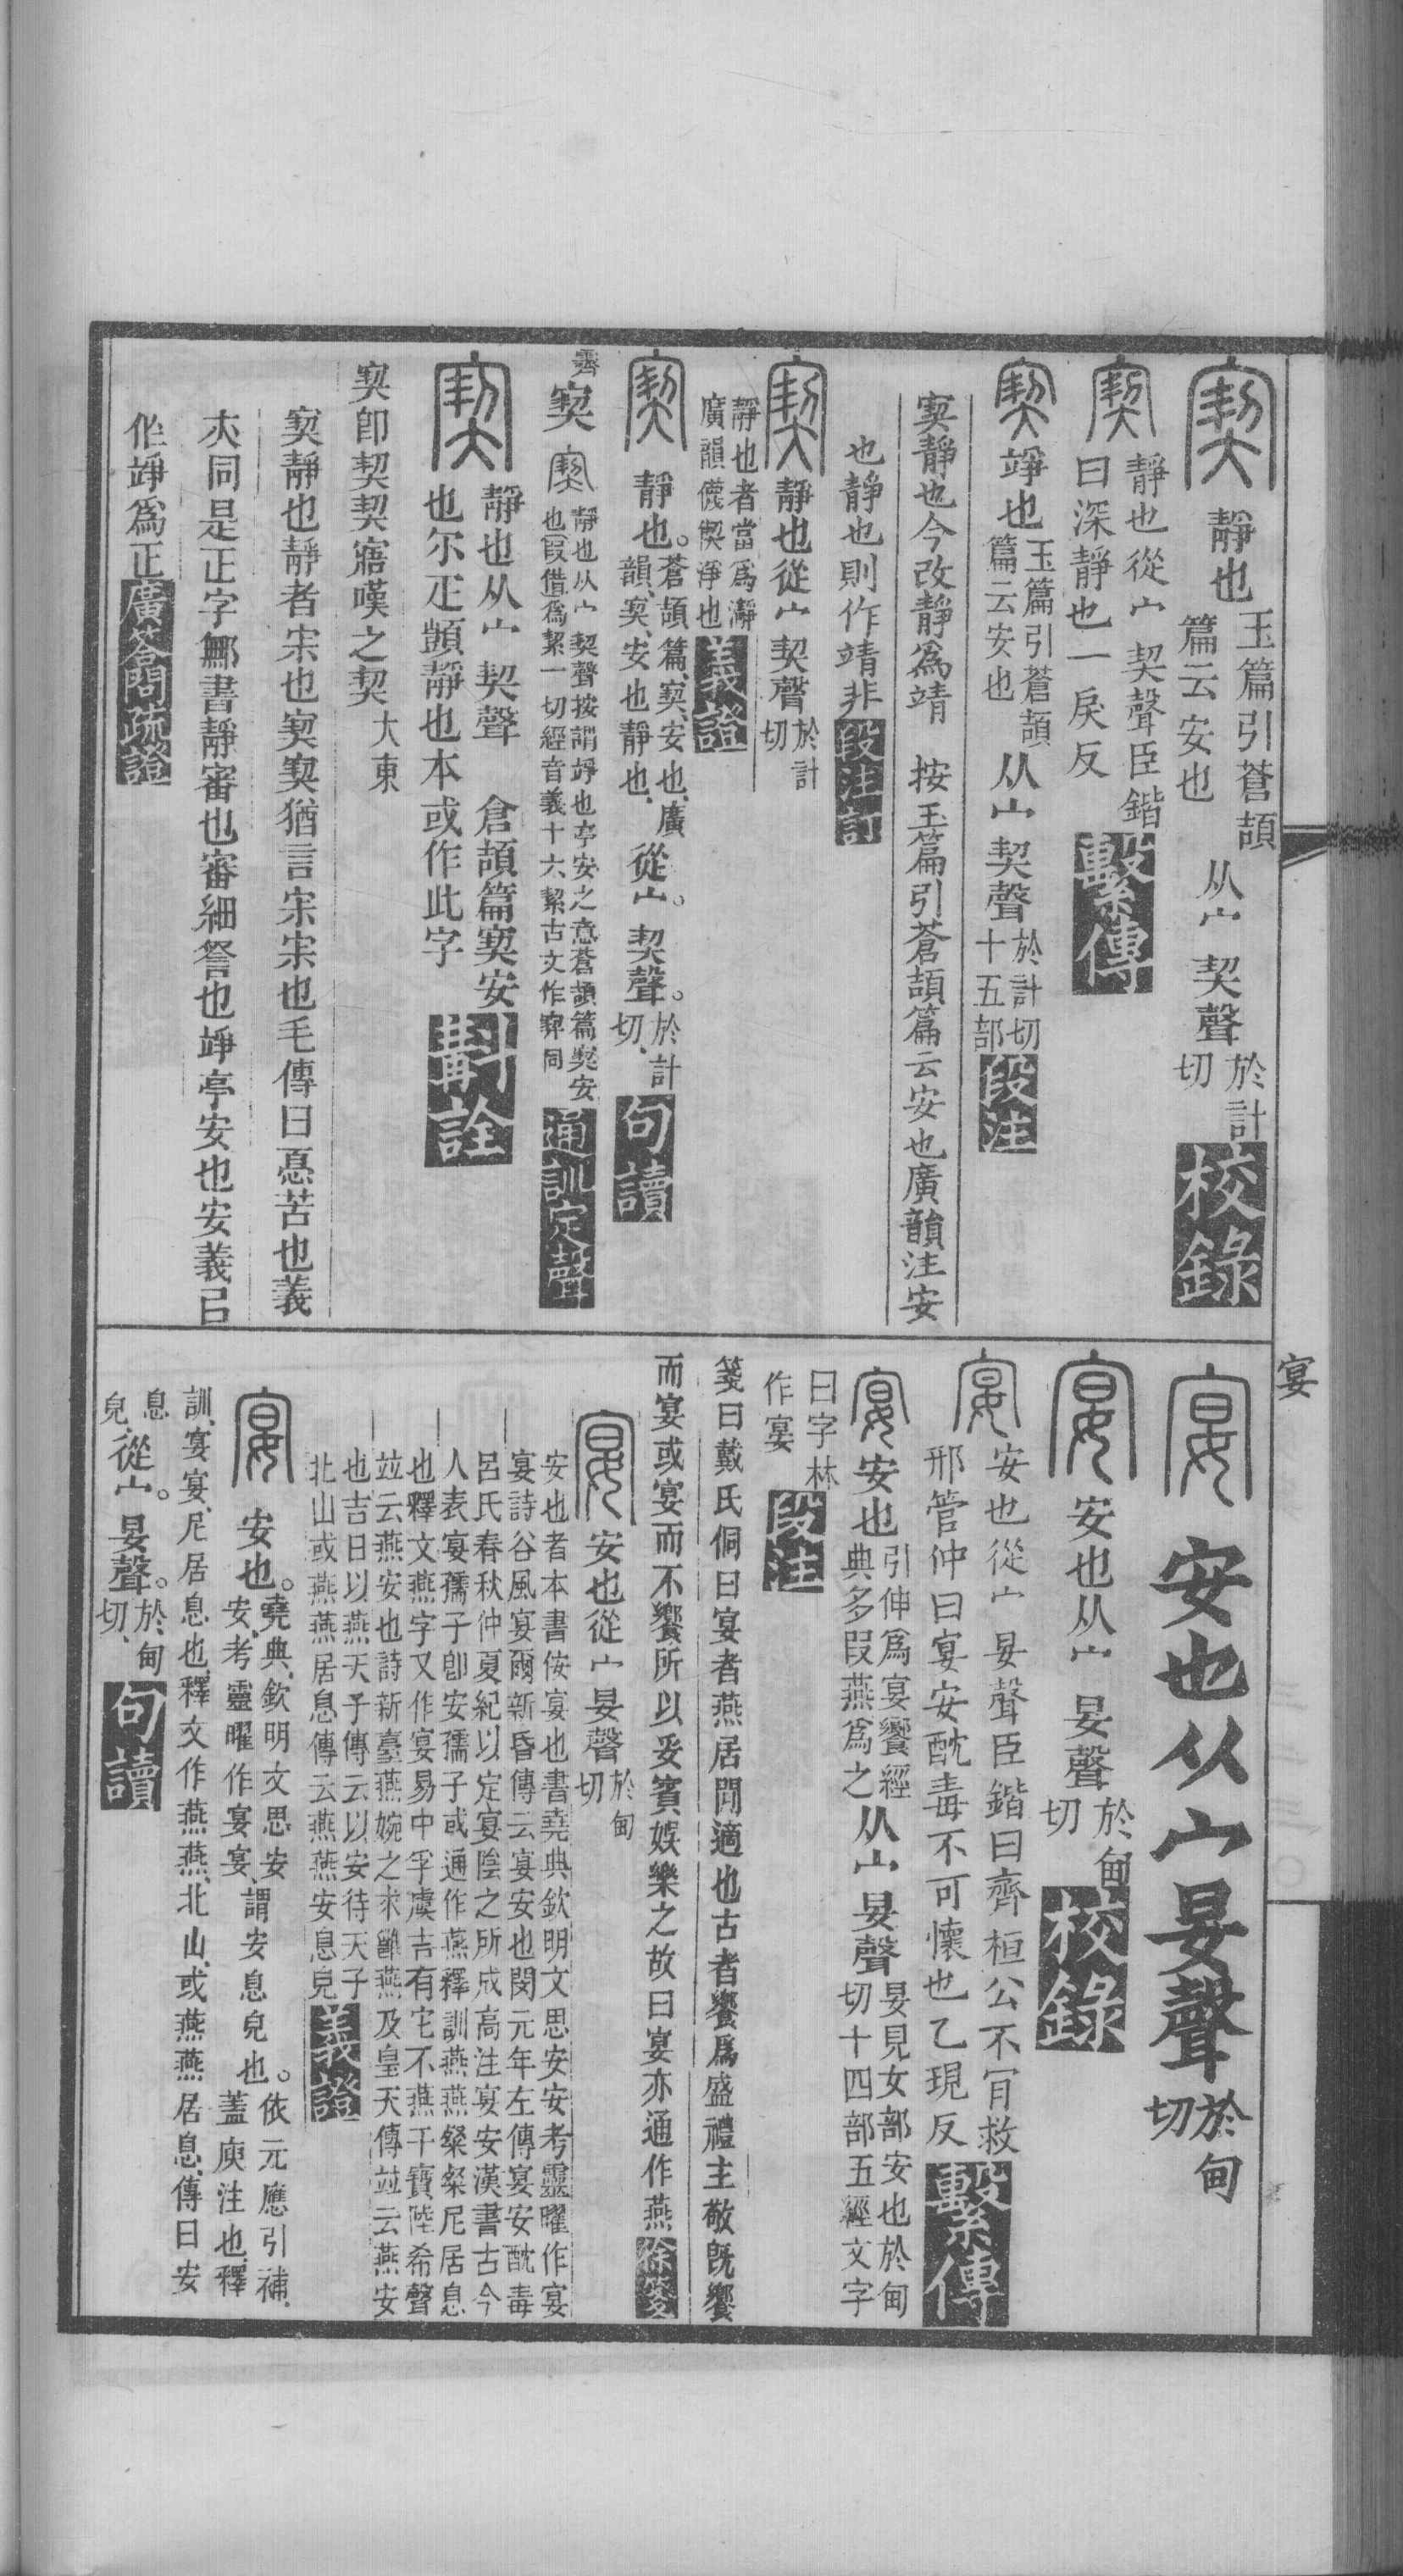 靜也玉篇引蒼頡
篇云安也从宀契聲於計
切校錄
靜也從宀契聲臣鍇
曰深靜也一戾反繫傳
竫也玉篇引蒼頡
篇云安也从宀契聲於計切
十五部段注
窫靜也今改靜爲靖 按玉篇引蒼頡篇云安也廣韻注安
也靜也則作靖非段注訂
靜也從宀契聲於計
切
靜也者當爲瀞
廣韻㣬㓗淨也義證
靜也。蒼頡篇、窫、安也、廣
韻、窫、安也靜也、從宀。契聲。於計
切、句讀
霽窫靜也从宀契聲按謂竫也亭安之意蒼頡篇窫安
也叚借爲絜一切經音義十六絜古文作窫同通訓定聲
靜也从宀契聲 倉頡篇窫安
也尔疋顗靜也本或作此字斠詮
窫卽契契寤嘆之契大東
窫靜也靜者宋也窫窫猶言宋宋也毛傳曰憂苦也義
夾同是正字鄦書靜審也審細詧也竫亭安也安義己
作竫爲正廣答問疏證
宴
安也从宀妟聲於甸
切
安也从宀妟聲於甸
切校錄
安也從宀妟聲臣鍇曰齊桓公不肎救
邢管仲曰宴安酖毒不可懷也乙現反繫傳
安也引伸爲宴饗經
典多叚燕爲之从宀妟聲妟見女部安也於甸
切十四部五經文字
曰字林
作宴段注
箋曰戴氏侗曰宴者燕居閒適也古者饗爲盛禮主敬旣饗
而宴或宴而不饗所以妥賓娛樂之故曰宴亦通作燕徐箋
安也從宀妟聲於甸
切
安也者本書侒宴也書堯典欽明文思安安考靈曜作宴
宴詩谷風宴爾新昏傳云宴安也閔元年左傳宴安酖毒
呂氏春秋仲夏紀以定宴陰之所成高注宴安漢書古今
人表宴孺子卽安孺子或通作燕釋訓燕燕粲粲尼居息
也釋文燕字又作宴易中孚虞吉有它不燕干寶陸希聲
竝云燕安也詩新臺燕婉之求雝燕及皇天傳竝云燕安
也吉日以燕天子傳云以安待天子
北山或燕燕居息傳云燕燕安息皃義證
安也。堯典、欽明文思安
安、考靈曜作宴宴、謂安息皃也。依元應引補、
蓋庾注也、釋
訓、宴宴、尼居息也、釋文作燕燕、北山、或燕燕居息、傳曰安
息
皃、從宀。妟聲。於甸
切、句讀